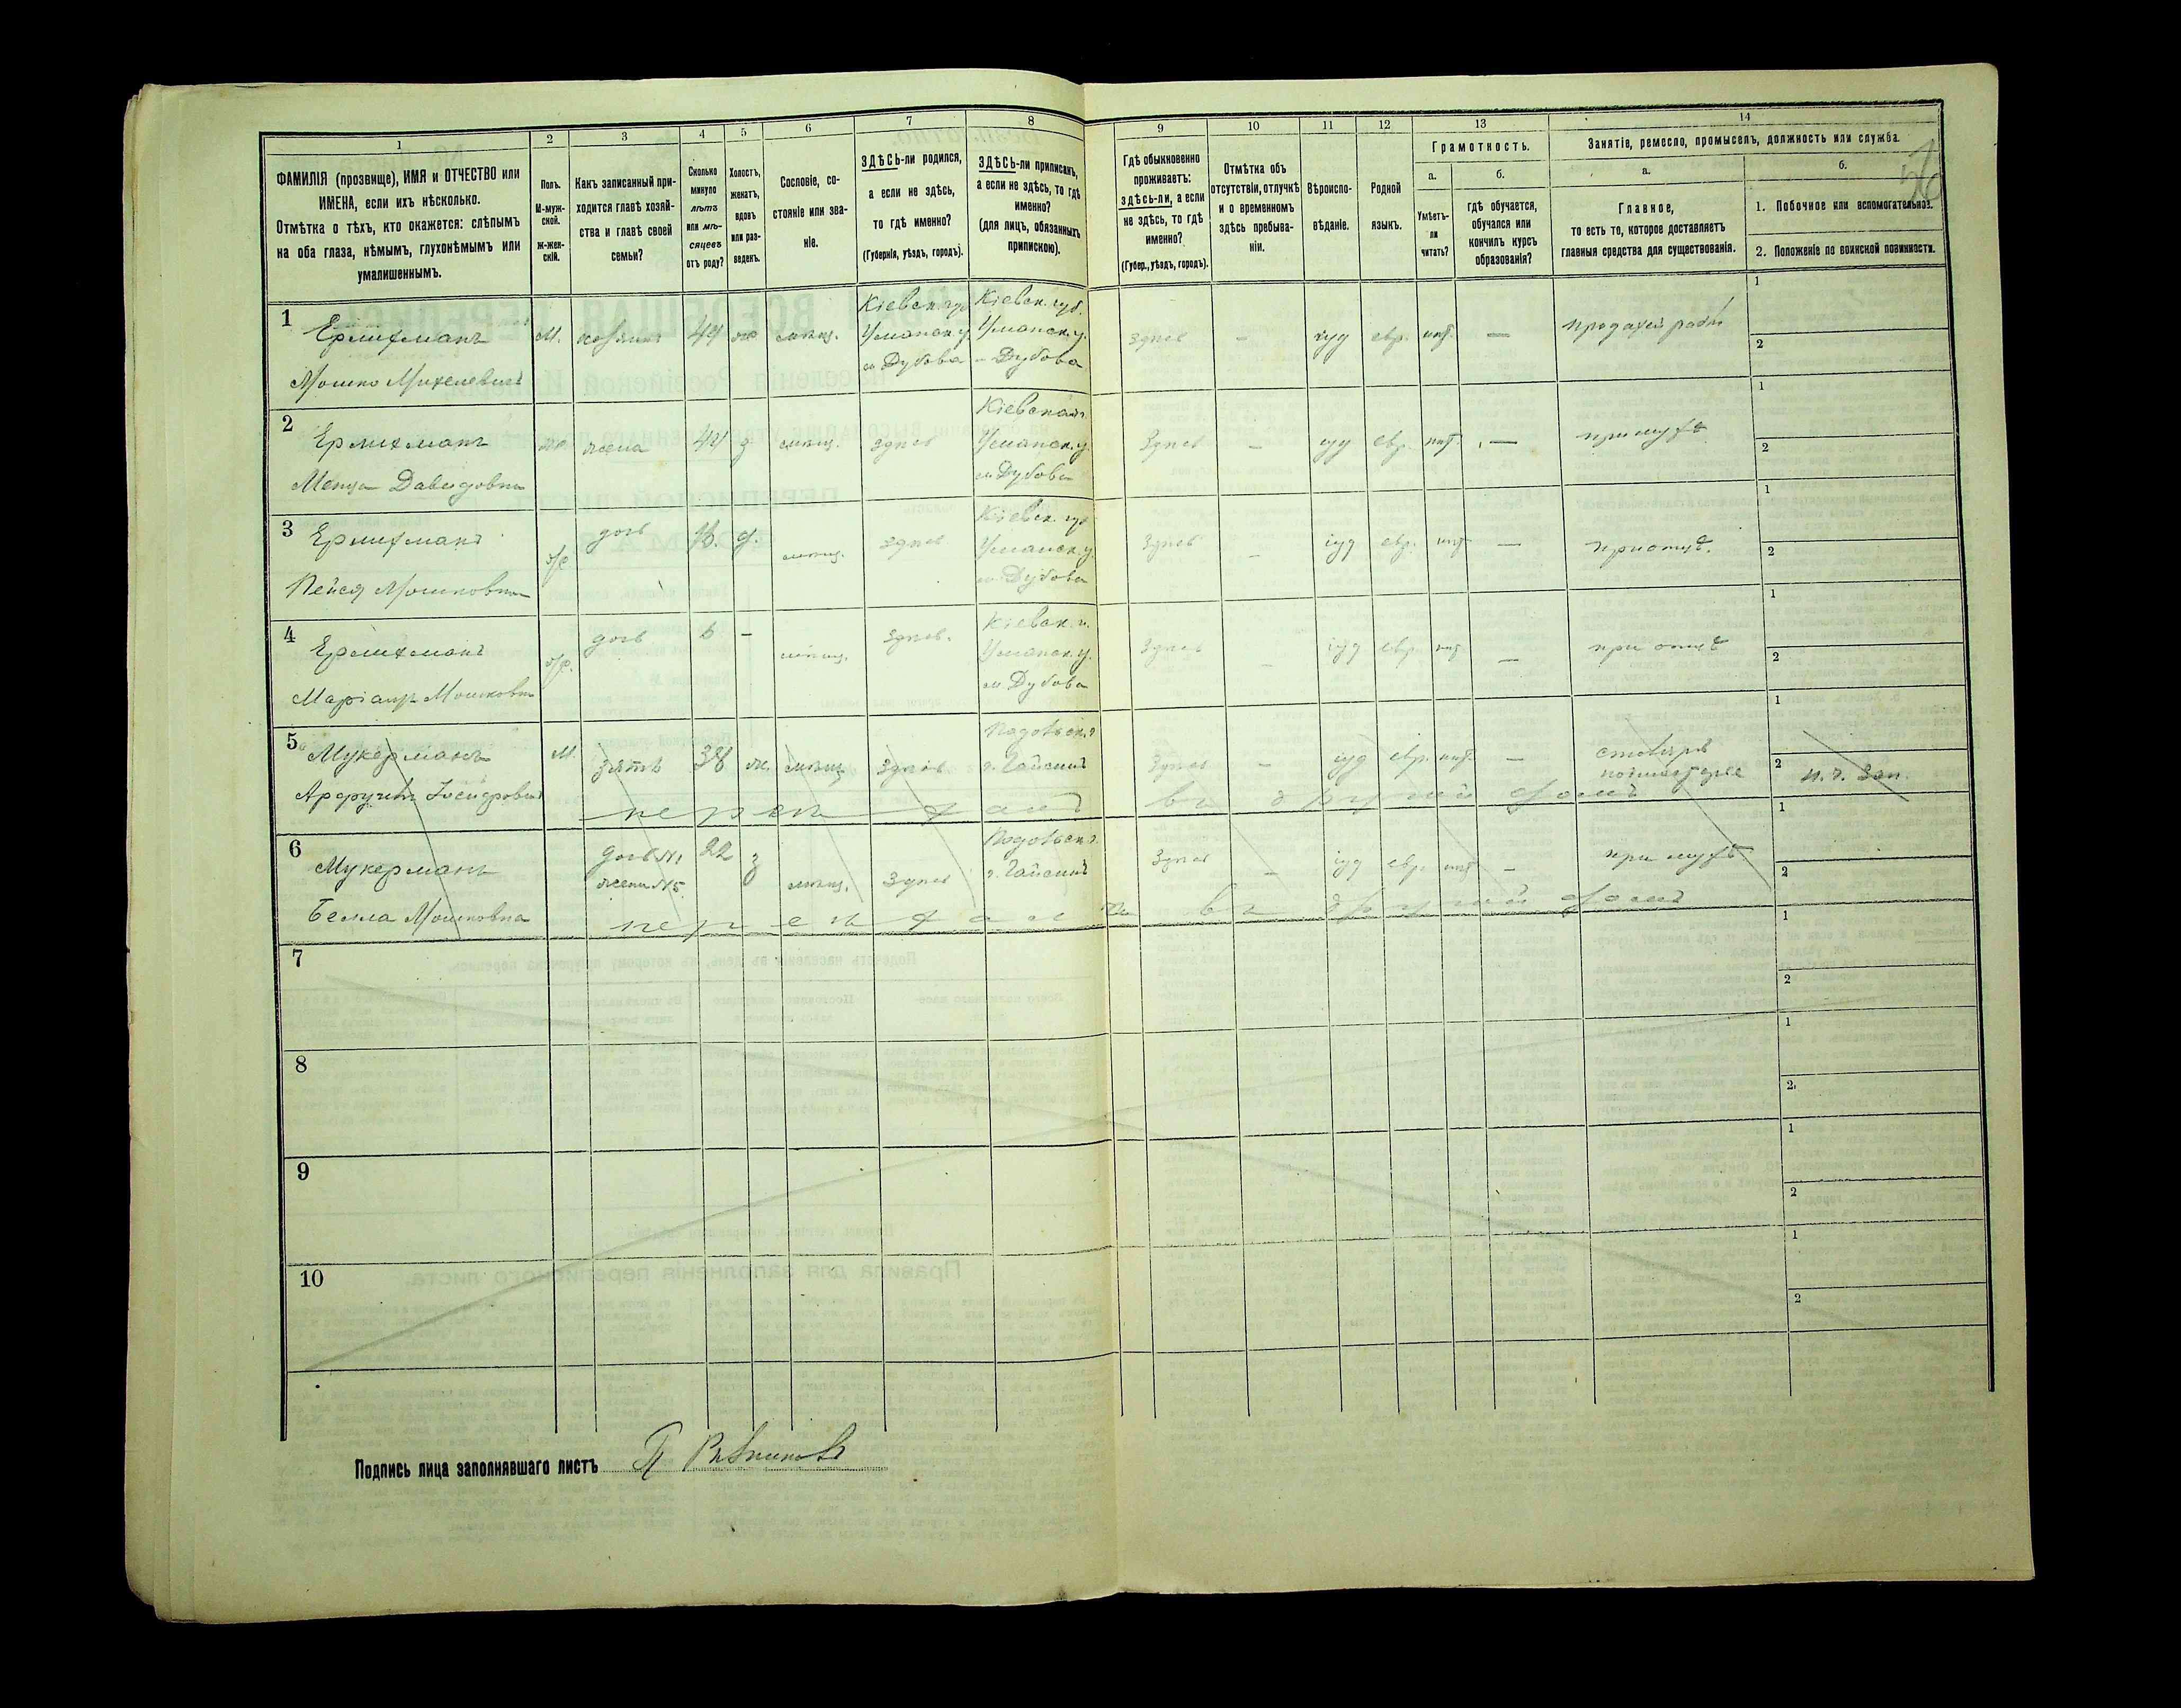 1
ФАМИЛІЯ (прозвище), ИМЯ и ОТЧЕСТВО или
ИМЕНА, если ихъ нѣсколько.
Отмѣтка о тѣхъ, кто окажется: слѣпымъ
на оба глаза, нѣмымъ, глухонѣмымъ или
умалишеннымъ.
2
Полъ.
М-муж-
ской.
Ж-жен-
скій.
3
Какъ записанный при-
ходится главѣ хозяй-
ства и главѣ своей
семьи?
4
Сколько
минуло
лѣтъ
или мѣ-
сяцевъ
отъ роду?
5
Холостъ,
женатъ,
вдовъ
или раз-
веденъ.
6
Сословіе, со-
стояніе или зва-
ніе.
7
ЗДѢСЬ-ли родился,
а если не здѣсь,
то гдѣ именно?
(Губернія, уѣздъ, городъ).
8
ЗДѢСЬ-ли приписанъ,
а если не здѣсь, то гдѣ
именно?
(для лицъ, обязанныхъ
припискою).
9
Гдѣ обыкновенно
проживаетъ:
здѣсь-ли, а если
не здѣсь, то гдѣ
именно?
(Губер., уѣздъ, городъ).
10
Отмѣтка объ
отсутствіи, отлучкѣ
и о временномъ
здѣсь пребыва-
ніи.
11
Вѣроиспо-
вѣданіе.
12
Родной
языкъ.
13
Грамотность.
а.
Умѣетъ-
ли
читать?
б.
гдѣ обучается,
обучался или
кончилъ курсъ
образованія?
14
Занятіе, ремесло, промыселъ, должность или служба.
а.
Главное,
то есть то, которое доставляетъ
главныя средства для существованія.
б.
1. Побочное или вспомогательное.
2. Положеніе по воинской повинности.
1
Ерлихманъ
Мошко Михелевичъ
М. хозяинъ 44 ж мѣщ.
Кіевск. губ.
Уманск. у.
м. Дубова
Кіевск. губ.
Уманск. у.
м. Дубова
здѣсь — іуд евр. нѣт. —
1
2
2
Ерлихманъ
Менця Давидовна
ж. жена 44 з мѣщ. здѣсь
Кіевская г.
Уманск. у.
м. Дубова
Здѣсь — іуд евр. нѣт. — при мужѣ
1
2
3
Ерлихманъ
Пейся Мошковна
ж дочь д. мѣщ. здѣсь
Кіевск. губ
Уманск. у.
м. Дубова
Здѣсь — іуд евр. нѣт — при отцѣ.
1
2
4
Ерлихманъ
Маріамъ Мошковна
ж. дочь 6 — мѣщ. здѣсь.
Кіевск. г.
Уманск. у.
м. Дубова
Здѣсь — іуд евр. нѣт — при отцѣ
1
2
5
Мукерманъ
М. зять 38 ж. мѣщ здѣсь
Подольск. г
г. Гайсинъ
Здѣсь — іуд евр. нѣт. — столяръ
1
2
въ другой домъ
6
Мукерманъ
Бейла Мошковна
дочь №1
жена №5
22 з мѣщ. Здѣсь
Подольск. г.
г. Гайсинъ
Здѣсь — іуд евр. нѣт — при мужѣ
1
2
въ другой домъ
7
1
2
8
1
2.
9
1
2
10
1
2
Подпись лица заполнявшаго листъ